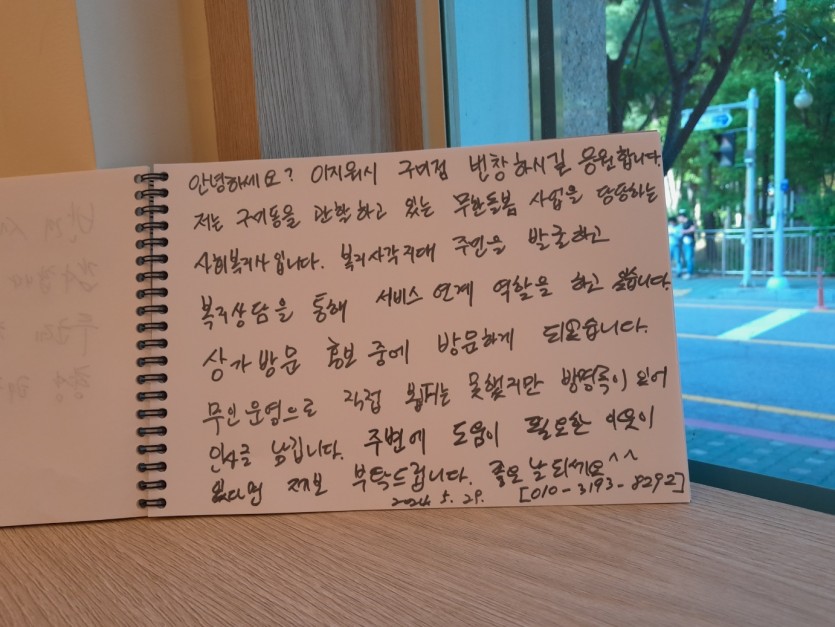 안녕하세요? 이지워시 구미점 번창하시길 응원합니다.
저는 구미동을 관할하고 있는 무한돌봄 사업을 담당하는
사회복지사입니다. 복지사각지대 주민을 발굴하고
복지상담을 통해 서비스 연계 역할을 하고 있습니다.
상가방문 홍보 중에 방문하게 되었습니다.
무인운영으로 직접 뵙지는 못했지만 방명록이 있어
인사글 남깁니다. 주변에 도움이 필요한 이웃이
있다면 제보 부탁드립니다. 좋은 날 되세요^^
2024. 5. 29. [010-3193-8292]